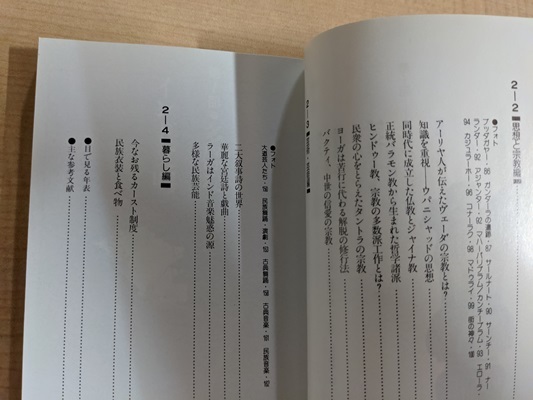 2—2 思想と宗教編
●フォト
ブッダガヤー・86 ガンダーラの遺跡・87 サールナート・90 サーンチー・91 ナー
ランダー・92 アジャンター・92 マハーバリプラム/カンチープラム・93 エローラ・
94 カジュラーホー・96 コナーラク・98 マドゥライ・99 街の神々・100
アーリヤ人が伝えたヴェーダの宗教とは?
知識を重視——ウパニシャッドの思想
同時代に成立した仏教とジャイナ教
正統バラモン教から生まれた哲学諸派
ヒンドゥー教、宗教の多数派工作とは?
民衆の心をとらえたタントラの宗教
ヨーガは苦行に代わる解脱の修行法
バクティ、中世の信愛の宗教
2—3
●フォト
大道芸人たち・150 民族舞踊・
古典舞踊・156 古典音楽・161 民族音楽・162
二大叙事詩の世界
華麗な宮廷詩と戯曲
ラーガはインド音楽魅惑の源
多様な民族芸能
2—4 暮らし編
今なお残るカースト制度
民族衣装と食べ物
●目で見る年表
●主な参考文献